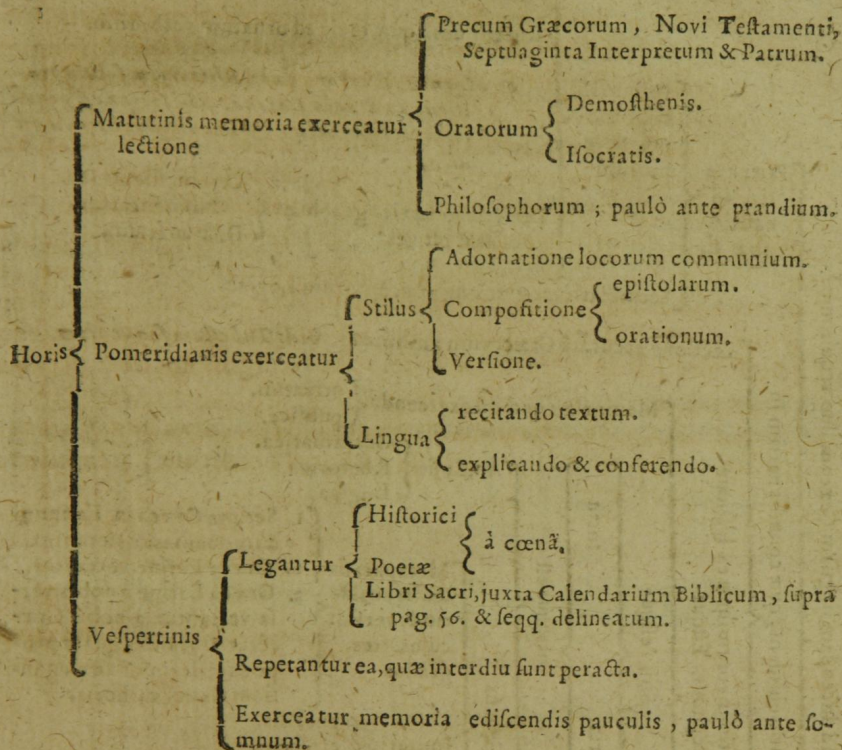 Precum Græcorum, Novi Teſtamenti,
Septuaginta Interpretum & Patrum.
Matutinis memoria exerceatur
lectione
Oratorum
Demoſthenis.
Iſocratis.
Philoſophorum ; paulò ante prandium.
Horis
Pomeridianis exerceatur
Stilus
Adornatione locorum communium.
Compoſitione
epiſtolarum.
orationum.
Verſione.
Lingua
recitando textum.
explicando & conferendo.
Veſpertinis
Legantur
Hiſtorici
Poetæ
à cœnâ.
Libri Sacri, juxta Calendarium Biblicum, ſupra
pag. 56. & ſeqq. delineatum.
Repetantur ea, quæ interdiu ſunt peracta.
Exerceatur memoria ediſcendis pauculis , paulò ante ſo-
mnum.